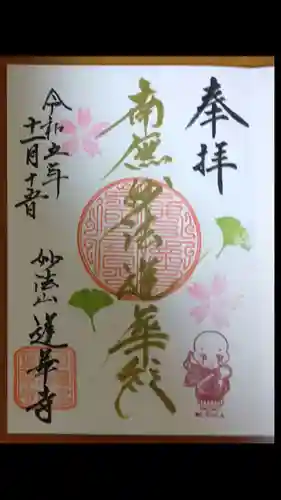 奉拝
南無妙法蓮華経
令和五年
十一月十五日
妙法山 蓮華寺